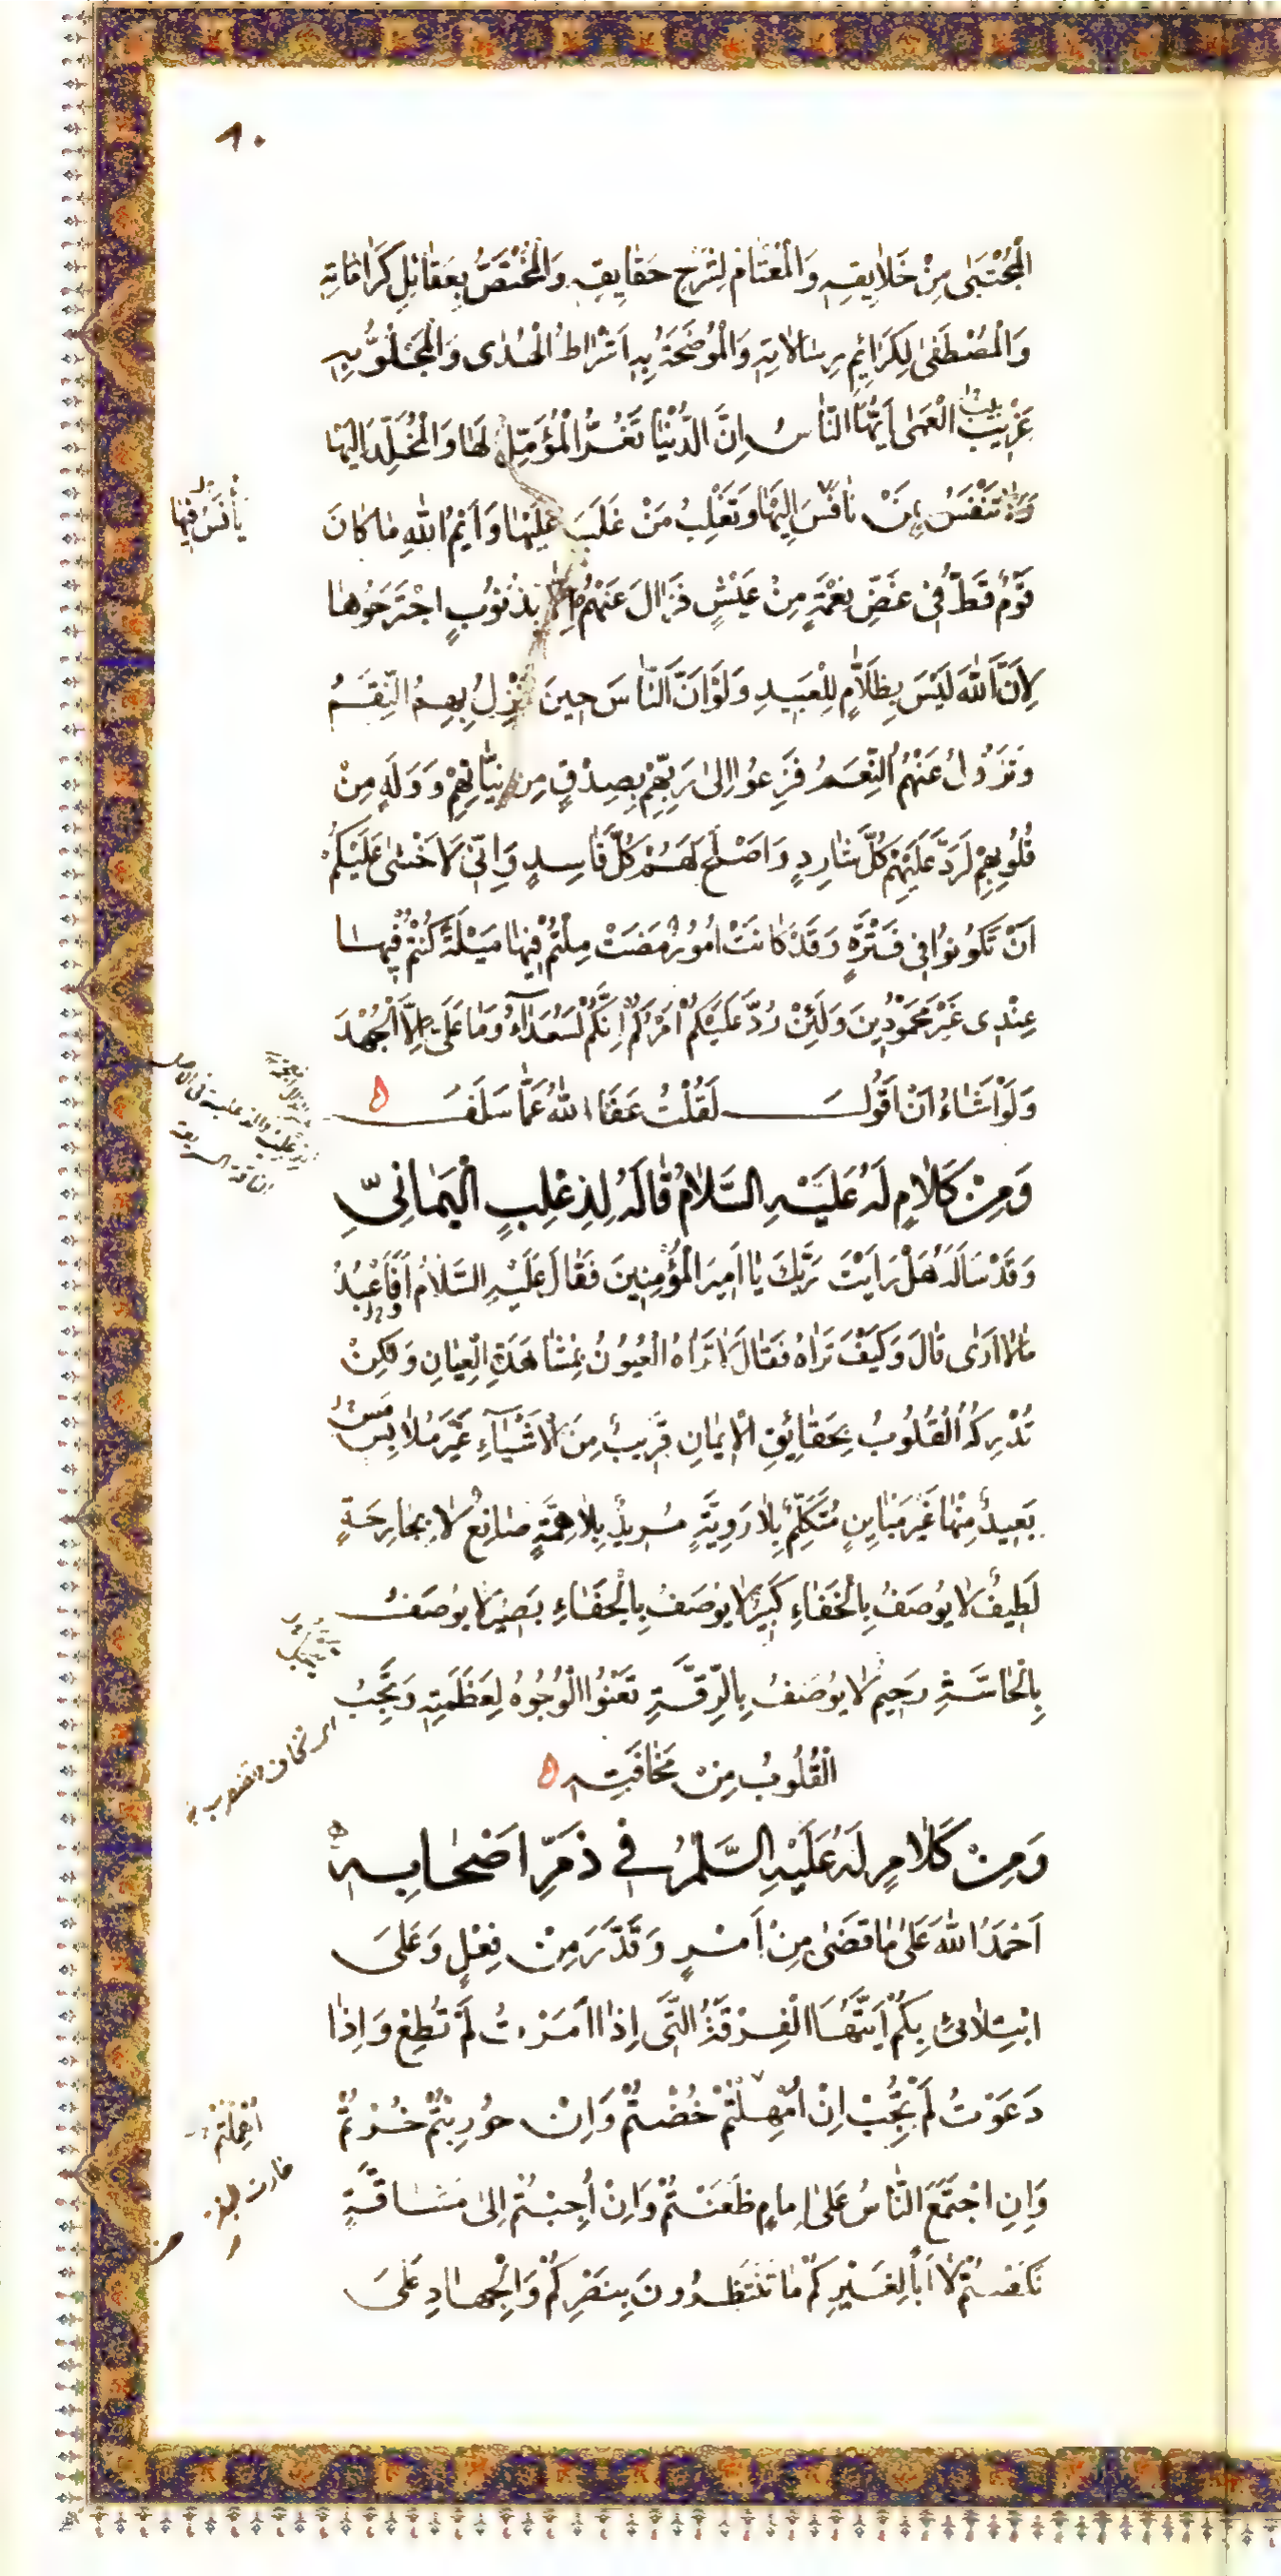 ٨٠
الْمُجْتَبٰى مِنْ خَلاٰيِقِهِ وَالْمُعْتٰامُ لِشَرْحِ حَقٰايِقِهِ وَالْمُخْتَصُّ بِعَقٰائِلِ كَرٰامٰاتِهِ
وَالْمُصْطَفىٰ لِكَرٰائِمِ رِسٰالاٰتِهِ وَالْمُوَضَّحَةُ بِهِ اَشْرٰاطُ الْهُدٰى وَالْمَجْلُوُّ بِهِ
غِرْبِيبُ الْعَمٰى اَيُّهَا النّٰاسُ اِنَّ الدُّنْيٰا تَغُرُّ الْمُؤَمِّلَ لَهٰا وَالْمُخْلِدَ اِلَيْهٰا
وَلاٰ تَنْفَسُ بِمَنْ نٰافَسَ اِلَيْهٰا وَتَغْلِبُ مَنْ غَلَبَ عَلَيْهٰا وَاَيْمُ اللهِ مٰا كٰانَ
نٰافَسَ فِيهٰا
قَوْمٌ قَطُّ فِي غَضِّ نِعْمَةٍ مِنْ عَيْشٍ فَزٰالَ عَنْهُمْ اِلاّٰ بِذُنُوبٍ اجْتَرَحُوهٰا
لِاَنَّ اللهَ لَيْسَ بِظَلاّٰمٍ لِلْعَبِيدِ وَلَوْ اَنَّ النّٰاسَ حِينَ تَنْزِلُ بِهِمُ النِّقَمُ
وَتَزُولُ عَنْهُمُ النِّعَمُ فَزِعُوا اِلىٰ رَبِّهِمْ بِصِدْقٍ مِنْ نِيّٰاتِهِمْ وَوَلَهٍ مِنْ
قُلُوبِهِمْ لَرَدَّ عَلَيْهِمْ كُلَّ شٰارِدٍ وَاَصْلَحَ لَهُمْ كُلَّ فٰاسِدٍ وَاِنّيٖ لَاَخْشٰى عَلَيْكُمْ
اَنْ تَكُونُوا فِي فَتْرَةٍ وَقَدْ كٰانَتْ اُمُورٌ مَضَتْ مِلْتُمْ فِيهٰا مَيْلَةً كُنْتُمْ فِيهٰا
عِنْدِى غَيْرَ مَحْمُودِينَ وَلَئِنْ رُدَّ عَلَيْكُمْ اَمْرُكُمْ اِنَّكُمْ لَسُعَدٰاءُ وَمٰا عَلَيَّ اِلَّا الْجُهْدُ
وَلَوْ اَشٰاءُ اَنْ اَقُولَ لَقُلْتُ عَفَا اللهُ عَمّٰا سَلَفَ
وَمِنْ كَلاٰمٍ لَهُ عَلَيْهِ السَّلاٰمُ قٰالَهُ لِذِعْلِبٍ الْيَمٰانِيِّ
وَقَدْ سَاَلَهُ هَلْ رَاَيْتَ رَبَّكَ يٰا اَمِيرَ الْمُؤْمِنِينَ فَقٰالَ عَلَيْهِ السَّلاٰمُ اَفَاَعْبُدُ
مٰا لاٰ اَرٰى قٰالَ وَكَيْفَ تَرٰاهُ فَقٰالَ لاٰ تَرٰاهُ الْعُيُونُ بِمُشٰاهَدَةِ الْعِيٰانِ وَلٰكِنْ
تُدْرِكُهُ الْقُلُوبُ بِحَقٰايِقِ الْاِيمٰانِ قَرِيبٌ مِنَ الْاَشْيٰاءِ غَيْرَ مُلاٰبِسٍ
بَعِيدٌ مِنْهٰا غَيْرَ مُبٰايِنٍ مُتَكَلِّمٌ بِلاٰ رَوِيَّةٍ مُرِيدٌ بِلاٰ هِمَّةٍ صٰانِعٌ لاٰ بِجٰارِحَةٍ
لَطِيفٌ لاٰ يُوصَفُ بِالْخَفٰاءِ كَبِيرٌ لاٰ يُوصَفُ بِالْجَفٰاءِ بَصِيرٌ لاٰ يُوصَفُ
بِالْحٰاسَّةِ رَحِيمٌ لاٰ يُوصَفُ بِالرِّقَّةِ تَعْنُوا الْوُجُوهُ لِعَظَمَتِهِ وَتَجِبُ
اى تخاف وتضطرب
الْقُلُوبُ مِنْ مَخٰافَتِهِ
وَمِنْ كَلاٰمٍ لَهُ عَلَيْهِ السَّلٰمُ فِي ذَمِّ اَصْحٰابِهِ
اَحْمَدُ اللهَ عَلىٰ مٰا قَضٰى مِنْ اَمْرٍ وَقَدَّرَ مِنْ فِعْلٍ وَعَلىَ
ابْتِلاٰئِي بِكُمْ اَيَّتُهَا الْفِرْقَةُ الَّتِى اِذٰا اَمَرْتُ لَمْ تُطِعْ وَاِذٰا
دَعَوْتُ لَمْ تُجِبْ اِنْ اُمْهِلْتُمْ خُضْتُمْ وَاِنْ حُورِبْتُمْ خُرْتُمْ
اُهْمِلْتُمْ
وَاِنِ اجْتَمَعَ النّٰاسُ عَلىٰ اِمٰامٍ طَعَنْتُمْ وَاِنْ اُجِبْتُمْ اِلىٰ مَشٰاقَّةٍ
نَكَصْتُمْ لاٰ اَبٰا لِغَيْرِكُمْ مٰا تَنْتَظِرُونَ بِنَصْرِكُمْ وَالْجِهٰادِ عَلىَ